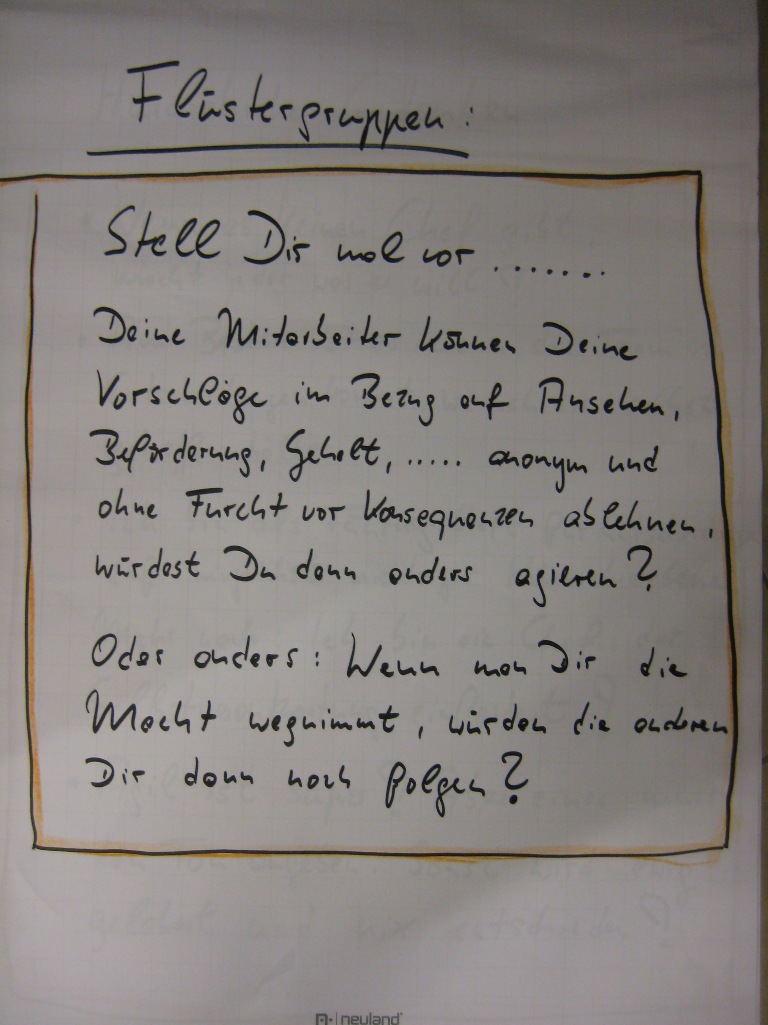 Flüstergruppen:
Stell Dir mal vor .......
Deine Mitarbeiter können Deine
Vorschläge im Bezug auf Ansehen,
Beförderung, Gehalt, ..... anonym und
ohne Furcht vor Konsequenzen ablehnen,
würdest Du dann anders agieren?
Oder anders: Wenn man Dir die
Macht wegnimmt, würden die anderen
Dir dann noch folgen?
neuland